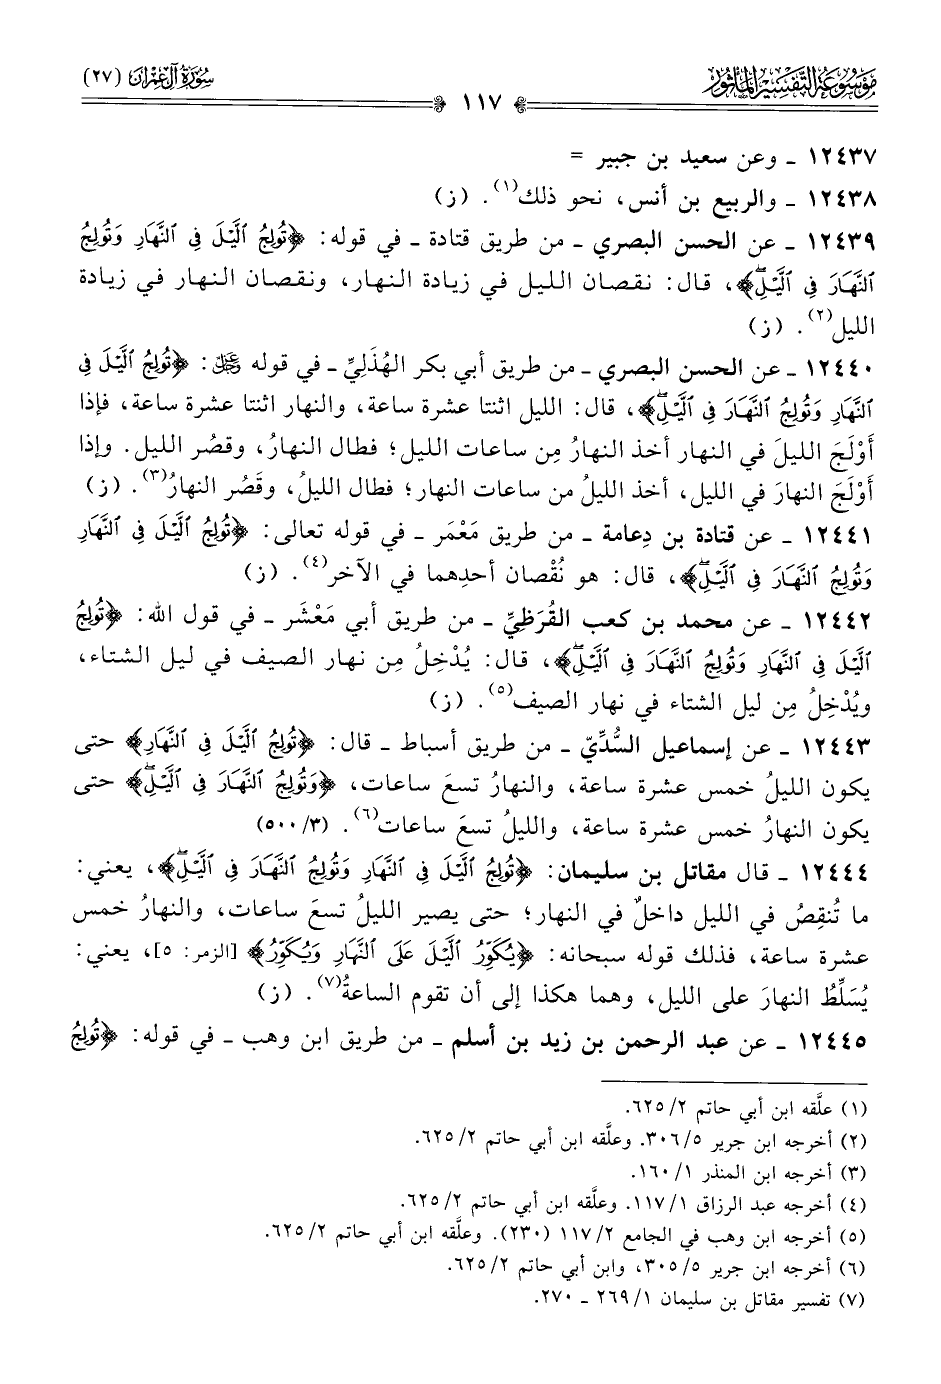 مَوْسُوعَة التَّفْسِيرِ المَأْثُور
سُورَةُ آلِ عِمْرَان (٢٧)
١١٧
١٢٤٣٧ ـ وعن سعيد بن جبير =
١٢٤٣٨ ـ والربيع بن أنس، نحو ذلك(١). (ز)
١٢٤٣٩ ـ عن الحسن البصري ـ من طريق قتادة ـ في قوله: ﴿تُولِجُ ٱلَّيْلَ فِى ٱلنَّهَارِ وَتُولِجُ
ٱلنَّهَارَ فِى ٱلَّيْلِۖ﴾، قال: نقصان الليل في زيادة النهار، ونقصان النهار في زيادة
الليل(٢). (ز)
١٢٤٤٠ ـ عن الحسن البصري ـ من طريق أبي بكر الهُذَلِيِّ ـ في قوله ﷿: ﴿تُولِجُ ٱلَّيْلَ فِى
ٱلنَّهَارِ وَتُولِجُ ٱلنَّهَارَ فِى ٱلَّيْلِۖ﴾، قال: الليل اثنتا عشرة ساعة، والنهار اثنتا عشرة ساعة، فإذا
أَوْلَجَ الليلَ في النهار أخذ النهارُ مِن ساعات الليل؛ فطال النهارُ، وقصُر الليل. وإذا
أَوْلَجَ النهارَ في الليل، أخذ الليلُ من ساعات النهار؛ فطال الليلُ، وقَصُر النهارُ(٣). (ز)
١٢٤٤١ ـ عن قتادة بن دِعامة ـ من طريق مَعْمَر ـ في قوله تعالى: ﴿تُولِجُ ٱلَّيْلَ فِى ٱلنَّهَارِ
وَتُولِجُ ٱلنَّهَارَ فِى ٱلَّيْلِۖ﴾، قال: هو نُقْصان أحدِهما في الآخر(٤). (ز)
١٢٤٤٢ ـ عن محمد بن كعب القُرَظِيِّ ـ من طريق أبي مَعْشَر ـ في قول الله: ﴿تُولِجُ
ٱلَّيْلَ فِى ٱلنَّهَارِ وَتُولِجُ ٱلنَّهَارَ فِى ٱلَّيْلِۖ﴾، قال: يُدْخِلُ مِن نهار الصيف في ليل الشتاء،
ويُدْخِلُ مِن ليل الشتاء في نهار الصيف(٥). (ز)
١٢٤٤٣ ـ عن إسماعيل السُّدِّيّ ـ من طريق أسباط ـ قال: ﴿تُولِجُ ٱلَّيْلَ فِى ٱلنَّهَارِ﴾ حتى
يكون الليلُ خمس عشرة ساعة، والنهارُ تسعَ ساعات، ﴿وَتُولِجُ ٱلنَّهَارَ فِى ٱلَّيْلِۖ﴾ حتى
يكون النهارُ خمس عشرة ساعة، والليلُ تسعَ ساعات(٦). (٣/ ٥٠٠)
١٢٤٤٤ ـ قال مقاتل بن سليمان: ﴿تُولِجُ ٱلَّيْلَ فِى ٱلنَّهَارِ وَتُولِجُ ٱلنَّهَارَ فِى ٱلَّيْلِۖ﴾، يعني:
ما تُنقِصُ في الليل داخلٌ في النهار؛ حتى يصير الليلُ تسعَ ساعات، والنهارُ خمس
عشرة ساعة، فذلك قوله سبحانه: ﴿يُكَوِّرُ ٱلَّيْلَ عَلَى ٱلنَّهَارِ وَيُكَوِّرُ﴾ [الزمر: ٥]، يعني:
يُسَلِّطُ النهارَ على الليل، وهما هكذا إلى أن تقوم الساعةُ(٧). (ز)
١٢٤٤٥ ـ عن عبد الرحمن بن زيد بن أسلم ـ من طريق ابن وهب ـ في قوله: ﴿تُولِجُ
(١) علَّقه ابن أبي حاتم ٢/ ٦٢٥.
(٢) أخرجه ابن جرير ٥/ ٣٠٦. وعلَّقه ابن أبي حاتم ٢/ ٦٢٥.
(٣) أخرجه ابن المنذر ١/ ١٦٠.
(٤) أخرجه عبد الرزاق ١/ ١١٧. وعلَّقه ابن أبي حاتم ٢/ ٦٢٥.
(٥) أخرجه ابن وهب في الجامع ٢/ ١١٧ (٢٣٠). وعلَّقه ابن أبي حاتم ٢/ ٦٢٥.
(٦) أخرجه ابن جرير ٥/ ٣٠٥، وابن أبي حاتم ٢/ ٦٢٥.
(٧) تفسير مقاتل بن سليمان ١/ ٢٦٩ ـ ٢٧٠.